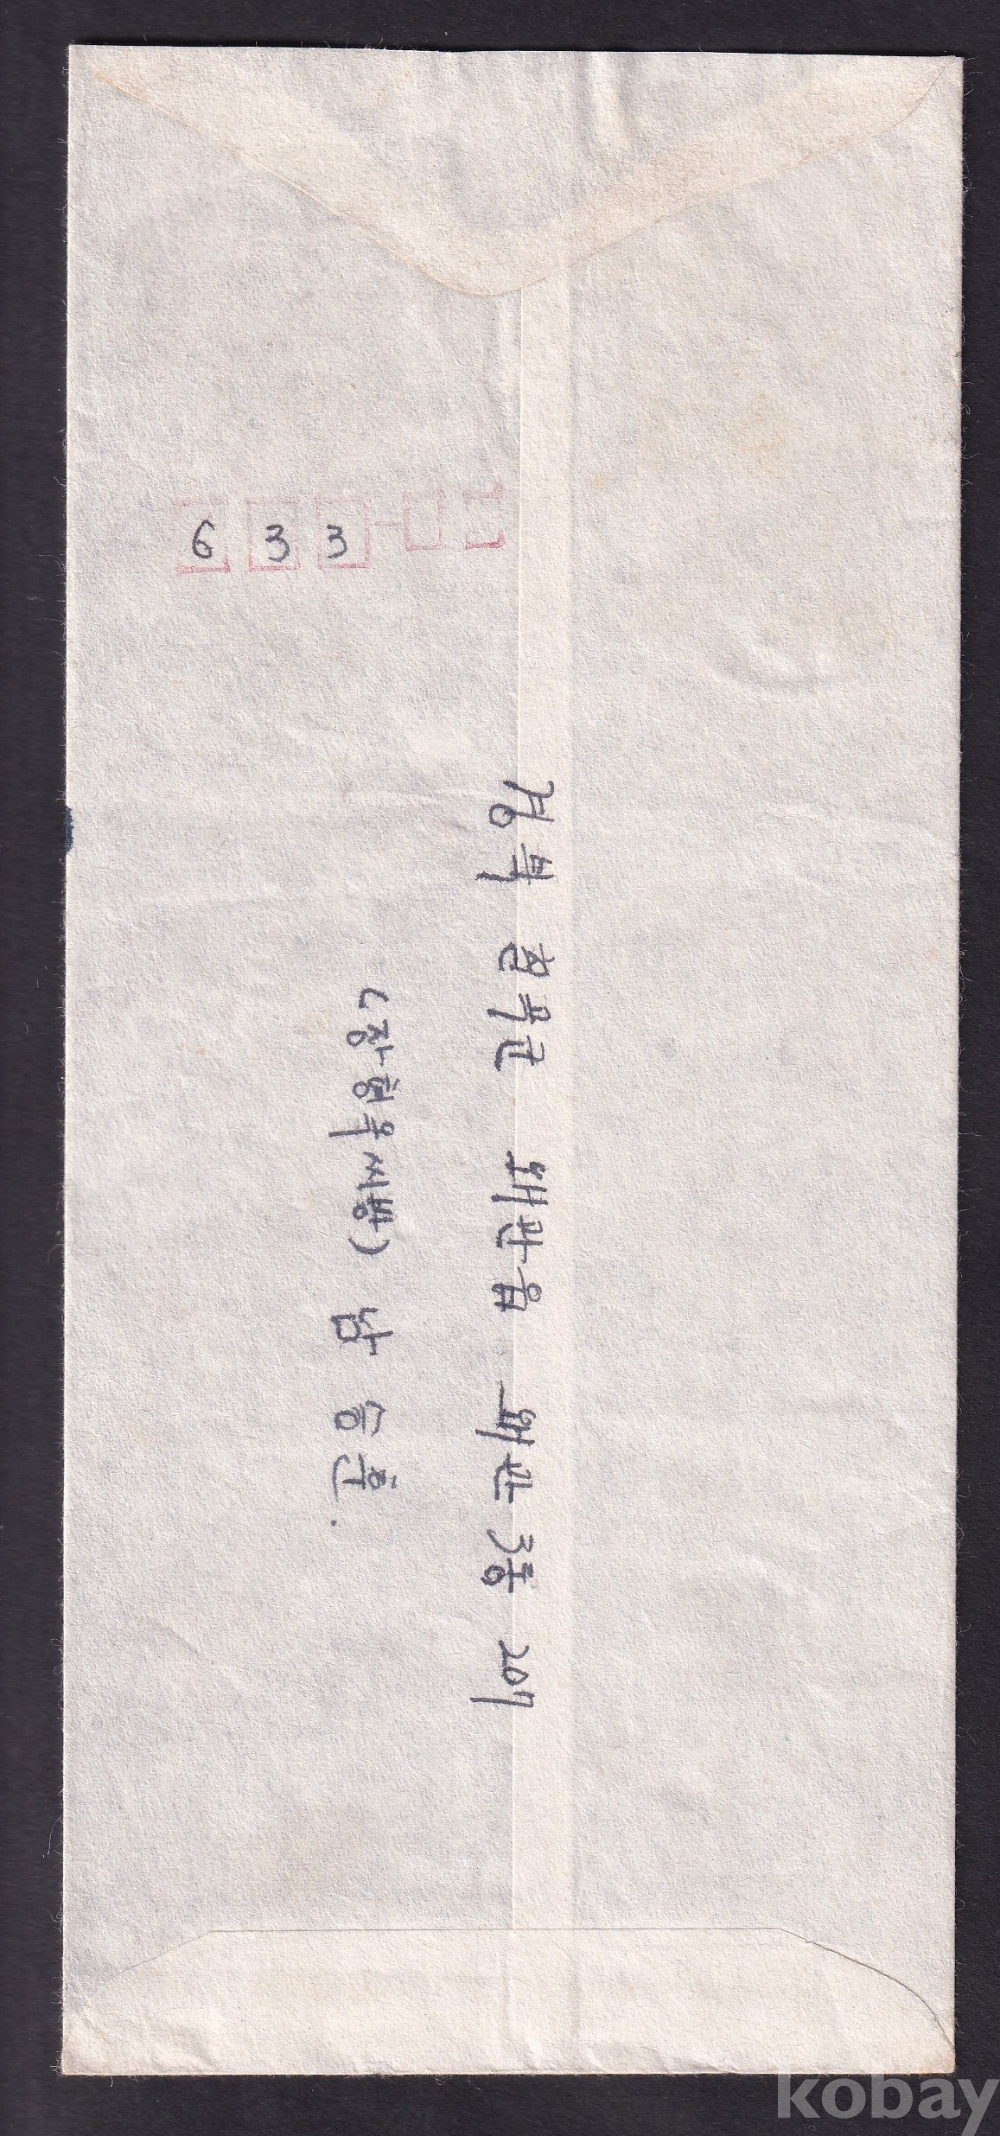 633
경북 칠곡군 왜관읍 왜관3동 207
(장형욱씨방) 남승훈.
kobay